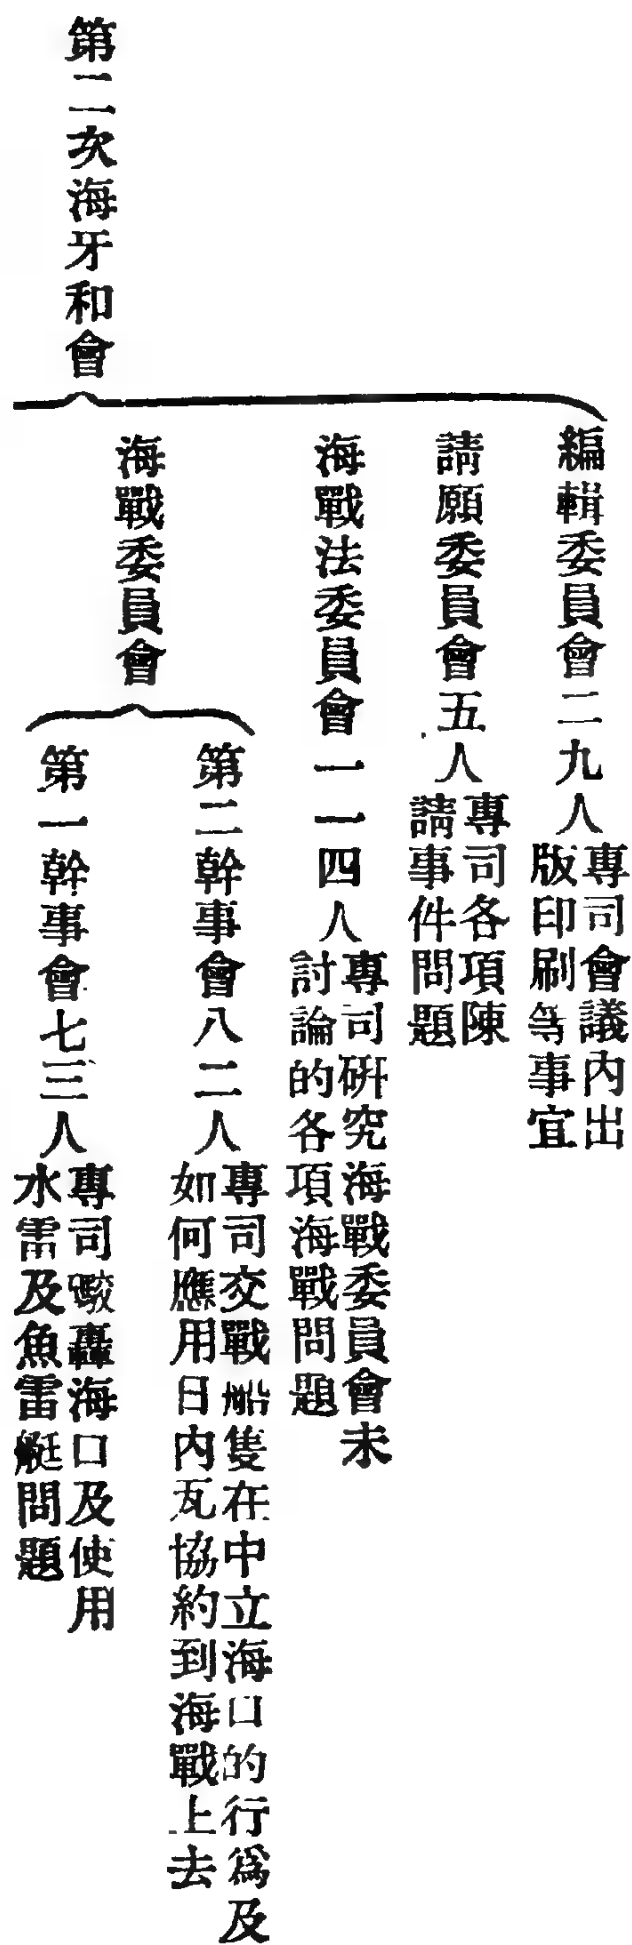 編輯委員會二九人
專司會議內出
版印刷等事宜
請願委員會五人
專司各項陳
請事件問題
海戰法委員會一一四人
專司研究海戰委員會未
討論的各項海戰問題
第二次海牙和會
海戰委員會
第二幹事會八二人
專司交戰船隻在中立海口的行爲及
如何應用日內瓦協約到海戰上去
第一幹事會七三人
專司礮轟海口及使用
水雷及魚雷艇問題